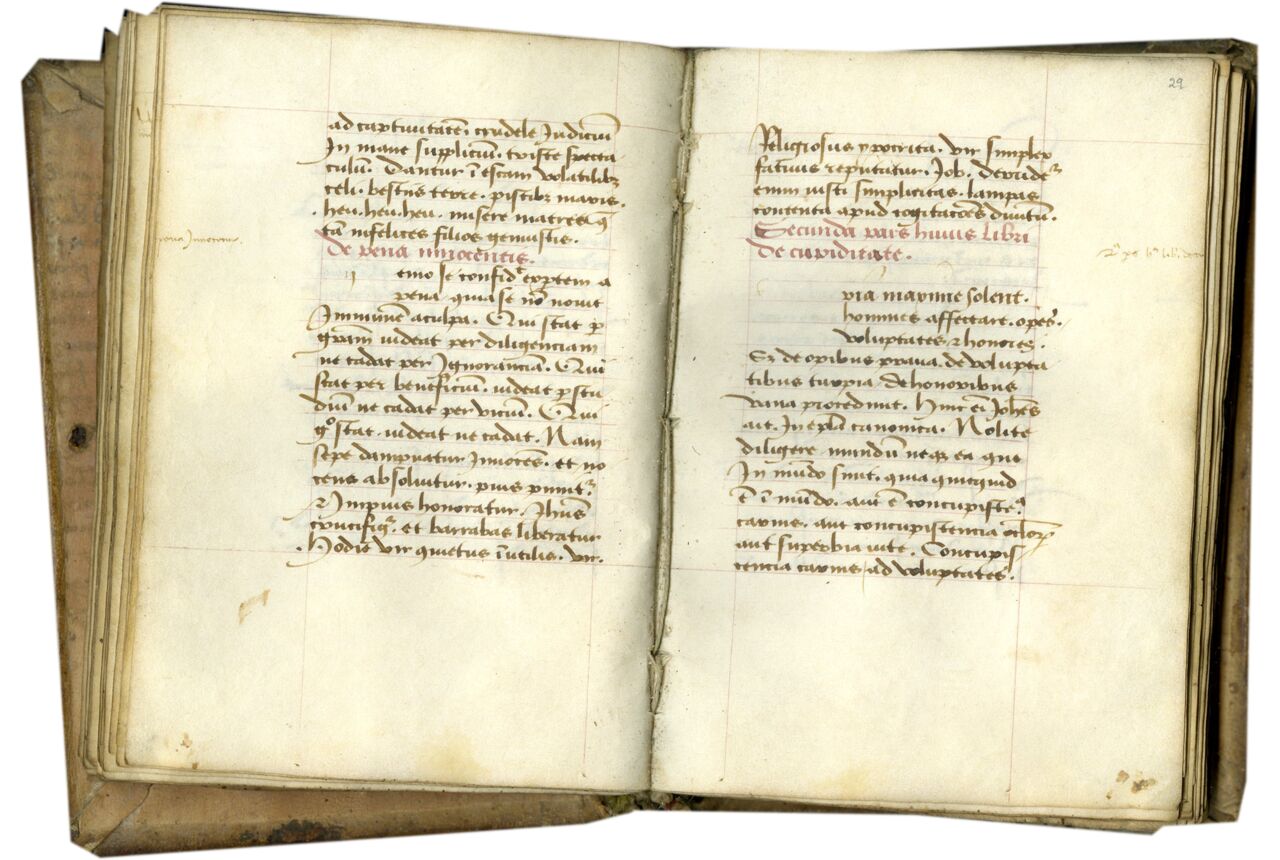 ad captiuitatē. crudele Judiciū
In mane suppliciū. triste specta
culū. Dantur ī escam volatilibꝫ
celi. bestiis terre. piscibꝫ maris.
heu. heu. heu. misere matres q̄
tā infelices filios genuistis.
De pena innocentis.
pena Innocent.
n
emo se confidat exptem a
pena qui se nō nouit
Immunē a culpa. Qui stat p
gr̄am uideat per diligenciam
ne cadat per Ignoranciā. Qui
stat per beneficiū. uideat p stu
diū ne cadat per viciū. Qui
gͦ stat. uideat ne cadat. Nam
sepe dampnatur Innocēs. et no
cens absoluitur. pius punitᷣ
⁊ Impius honoratur. Jhūs
crucifigᷣ. et barrabas liberatur
Hodie vir quietus īutilis. vir.
29
Religiosus ypocrita. vir simplex
fatuus reputatur. Job. Deridetᷣ
enim iusti simplicitas. lampas
contenta apud cogitacōes diuitū.
Secunda pars huius Libri
de cupiditate.
ria maxime solent.
homines affectare. opes.
voluptates ⁊ honores.
Sꝫ de opibus praua. de volupta
tibus turpia. de honoribus
vana procedunt. Hinc eī Johēs
ait. In ep̄la canonica. Nolite
diligere mundū neqꝫ ea que
In mūdo sunt. quia quicquid
ē ī mūdo. aut ē concupiscēᵃ
carnis. aut concupiscencia oclorꝫ
aut superbia uite. Concupis
cencia carnis ad voluptates.